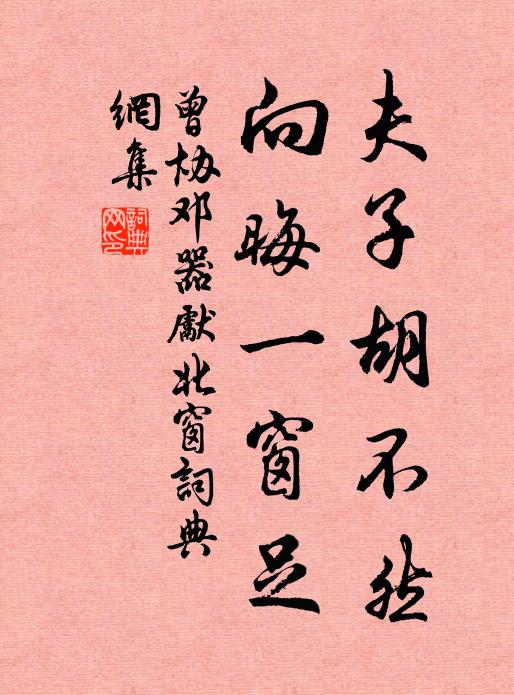 夫子胡不然
向晦一窗足
曾协邓器献北窗詞典
網集
詞典
网印